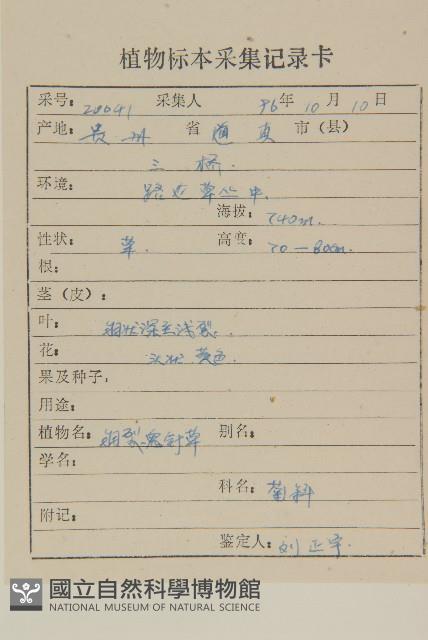 植物标本采集记录卡
采号: 20641 采集人 96年10月10日
产地: 贵州 省 道真 市(县)
三桥.
环境: 路边草丛中.
海拔: 740m.
性状: 草. 高度: 70—80cm.
根:
茎(皮):
叶: 羽状深至浅裂.
花: 头状 黄色.
果及种子:
用途:
植物名: 羽裂鬼针草 别名:
学名:
科名: 菊科
附记:
鉴定人: 刘正宇.
國立自然科學博物館
NATIONAL MUSEUM OF NATURAL SCIENCE